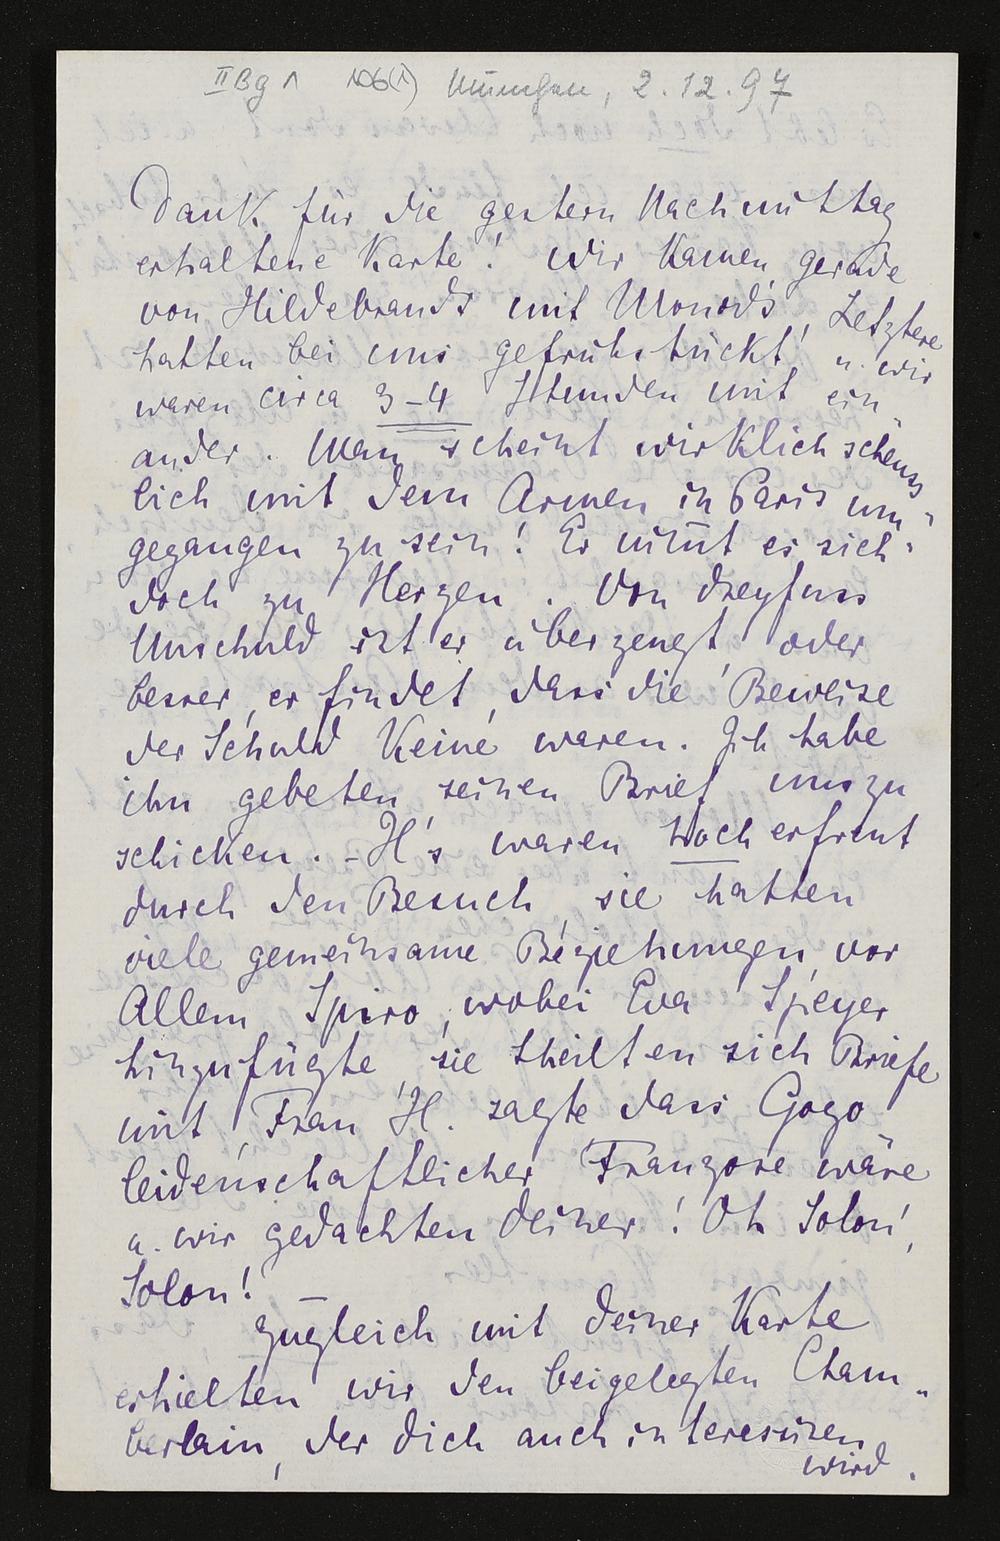 II Bg 1 106(1) München, 2.12.97
Dank für die gestern Nachmittag
erhaltene Karte! Wir kamen gerade
von Hildebrands mit Monod's! Letztere
hatten bei uns gefrühstückt u. wir
waren circa 3-4 Stunden mit ein"
ander. Man scheint wirklich scheuss"
lich mit dem Armen in Paris um"
gegangen zu sein! Er nim̄t es sich
doch zu Herzen. Von Dreyfuss
Unschuld ist er überzeugt, oder
besser, er findet, dass die Beweise
der Schuld Keine waren. Ich habe
ihn gebeten seinen Brief uns zu
schicken. - H's waren hoch erfreut
durch den Besuch, sie hatten
viele gemeinsame Beziehungen, vor
Allem Spiro, wobei Eva Speyer
hinzufügte, sie theilten sich Briefe
mit, Frau H. sagte dass Gogo
leidenschaftlicher Franzose wäre
u. wir gedachten deiner! Oh Solon,
Solon! —
Zugleich mit deiner Karte
erhielten wir den beigelegten Cham"
berlain, der dich auch interessiren
wird.